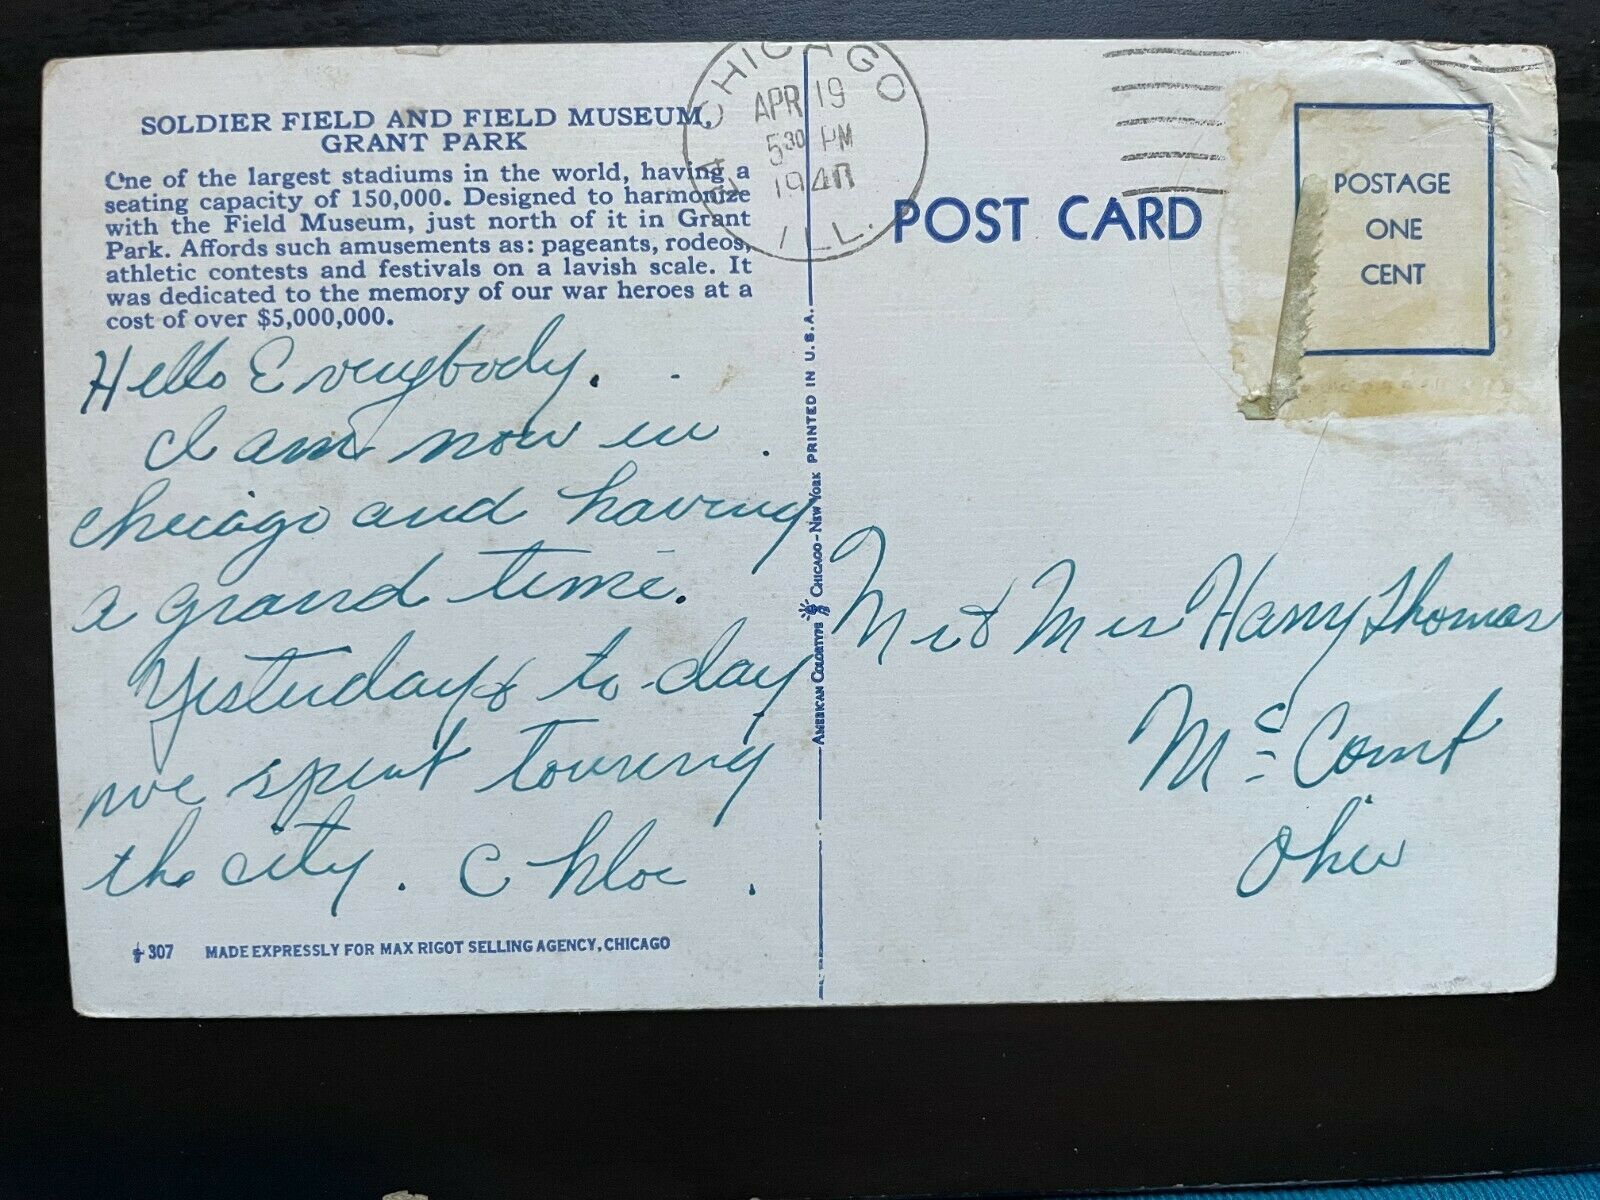 SOLDIER FIELD AND FIELD MUSEUM,
GRANT PARK
One of the largest stadiums in the world, having a
seating capacity of 150,000. Designed to harmonize
with the Field Museum, just north of it in Grant
Park. Affords such amusements as: pageants, rodeos,
athletic contests and festivals on a lavish scale. It
was dedicated to the memory of our war heroes at a
cost of over $5,000,000.
Hello Everybody.
I am now in
Chicago and having
a grand time.
Yesterday & to-day
we spent touring
the city. Chloe.
307 MADE EXPRESSLY FOR MAX RIGOT SELLING AGENCY, CHICAGO
AMERICAN COLORTYPE CHICAGO-NEW YORK PRINTED IN U.S.A.
CHICAGO
APR 19
5 30 PM
ILL.
POST CARD
POSTAGE
ONE
CENT
Mr & Mrs Harry Thomas
Mc Comb
Ohio